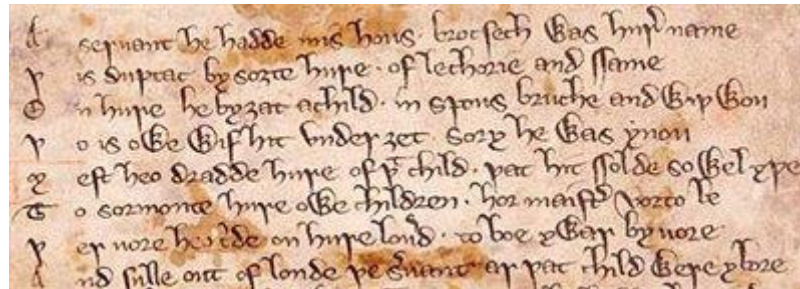 A seruant he hadde in is hous · brotsech was hure name
þis duptac by soȝte hure · of lechorie and ssame
On hure he byȝat a child · in spous bruche and wyþ wou
þo is owe wif hit vnder ȝet · sory he was ynou
ȝ est heo dradde hure of þe child · þat hit ssolde so wel yþe
To sormonte hure owe children · hor maister vorto be
þer uore he red on hure louerd · to boe ywar byuore
And sulle out of londe þe seruant ar þat child were ybore